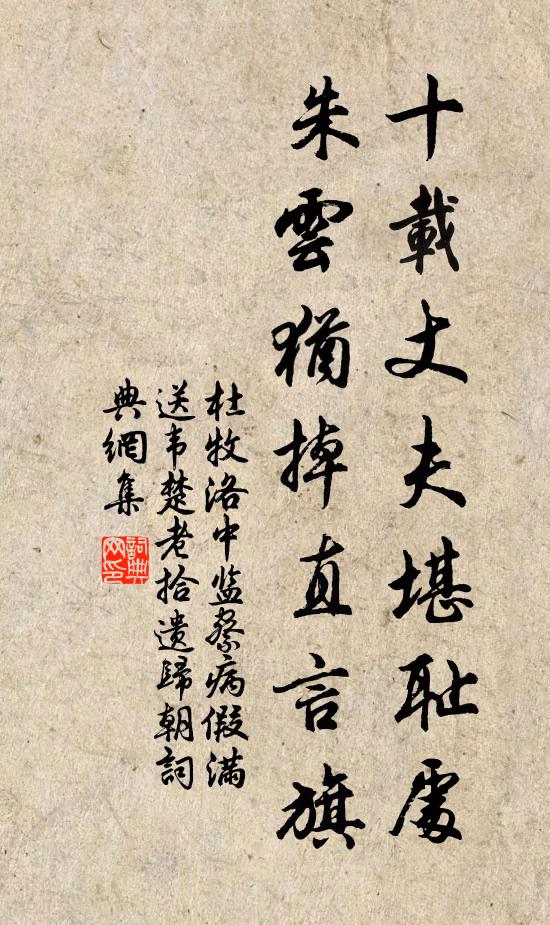 十載丈夫堪耻處
朱雲猶掉直言旗
杜牧洛中监察病假滿
送韦楚老拾遺歸朝詞
典網集
詞典
网印